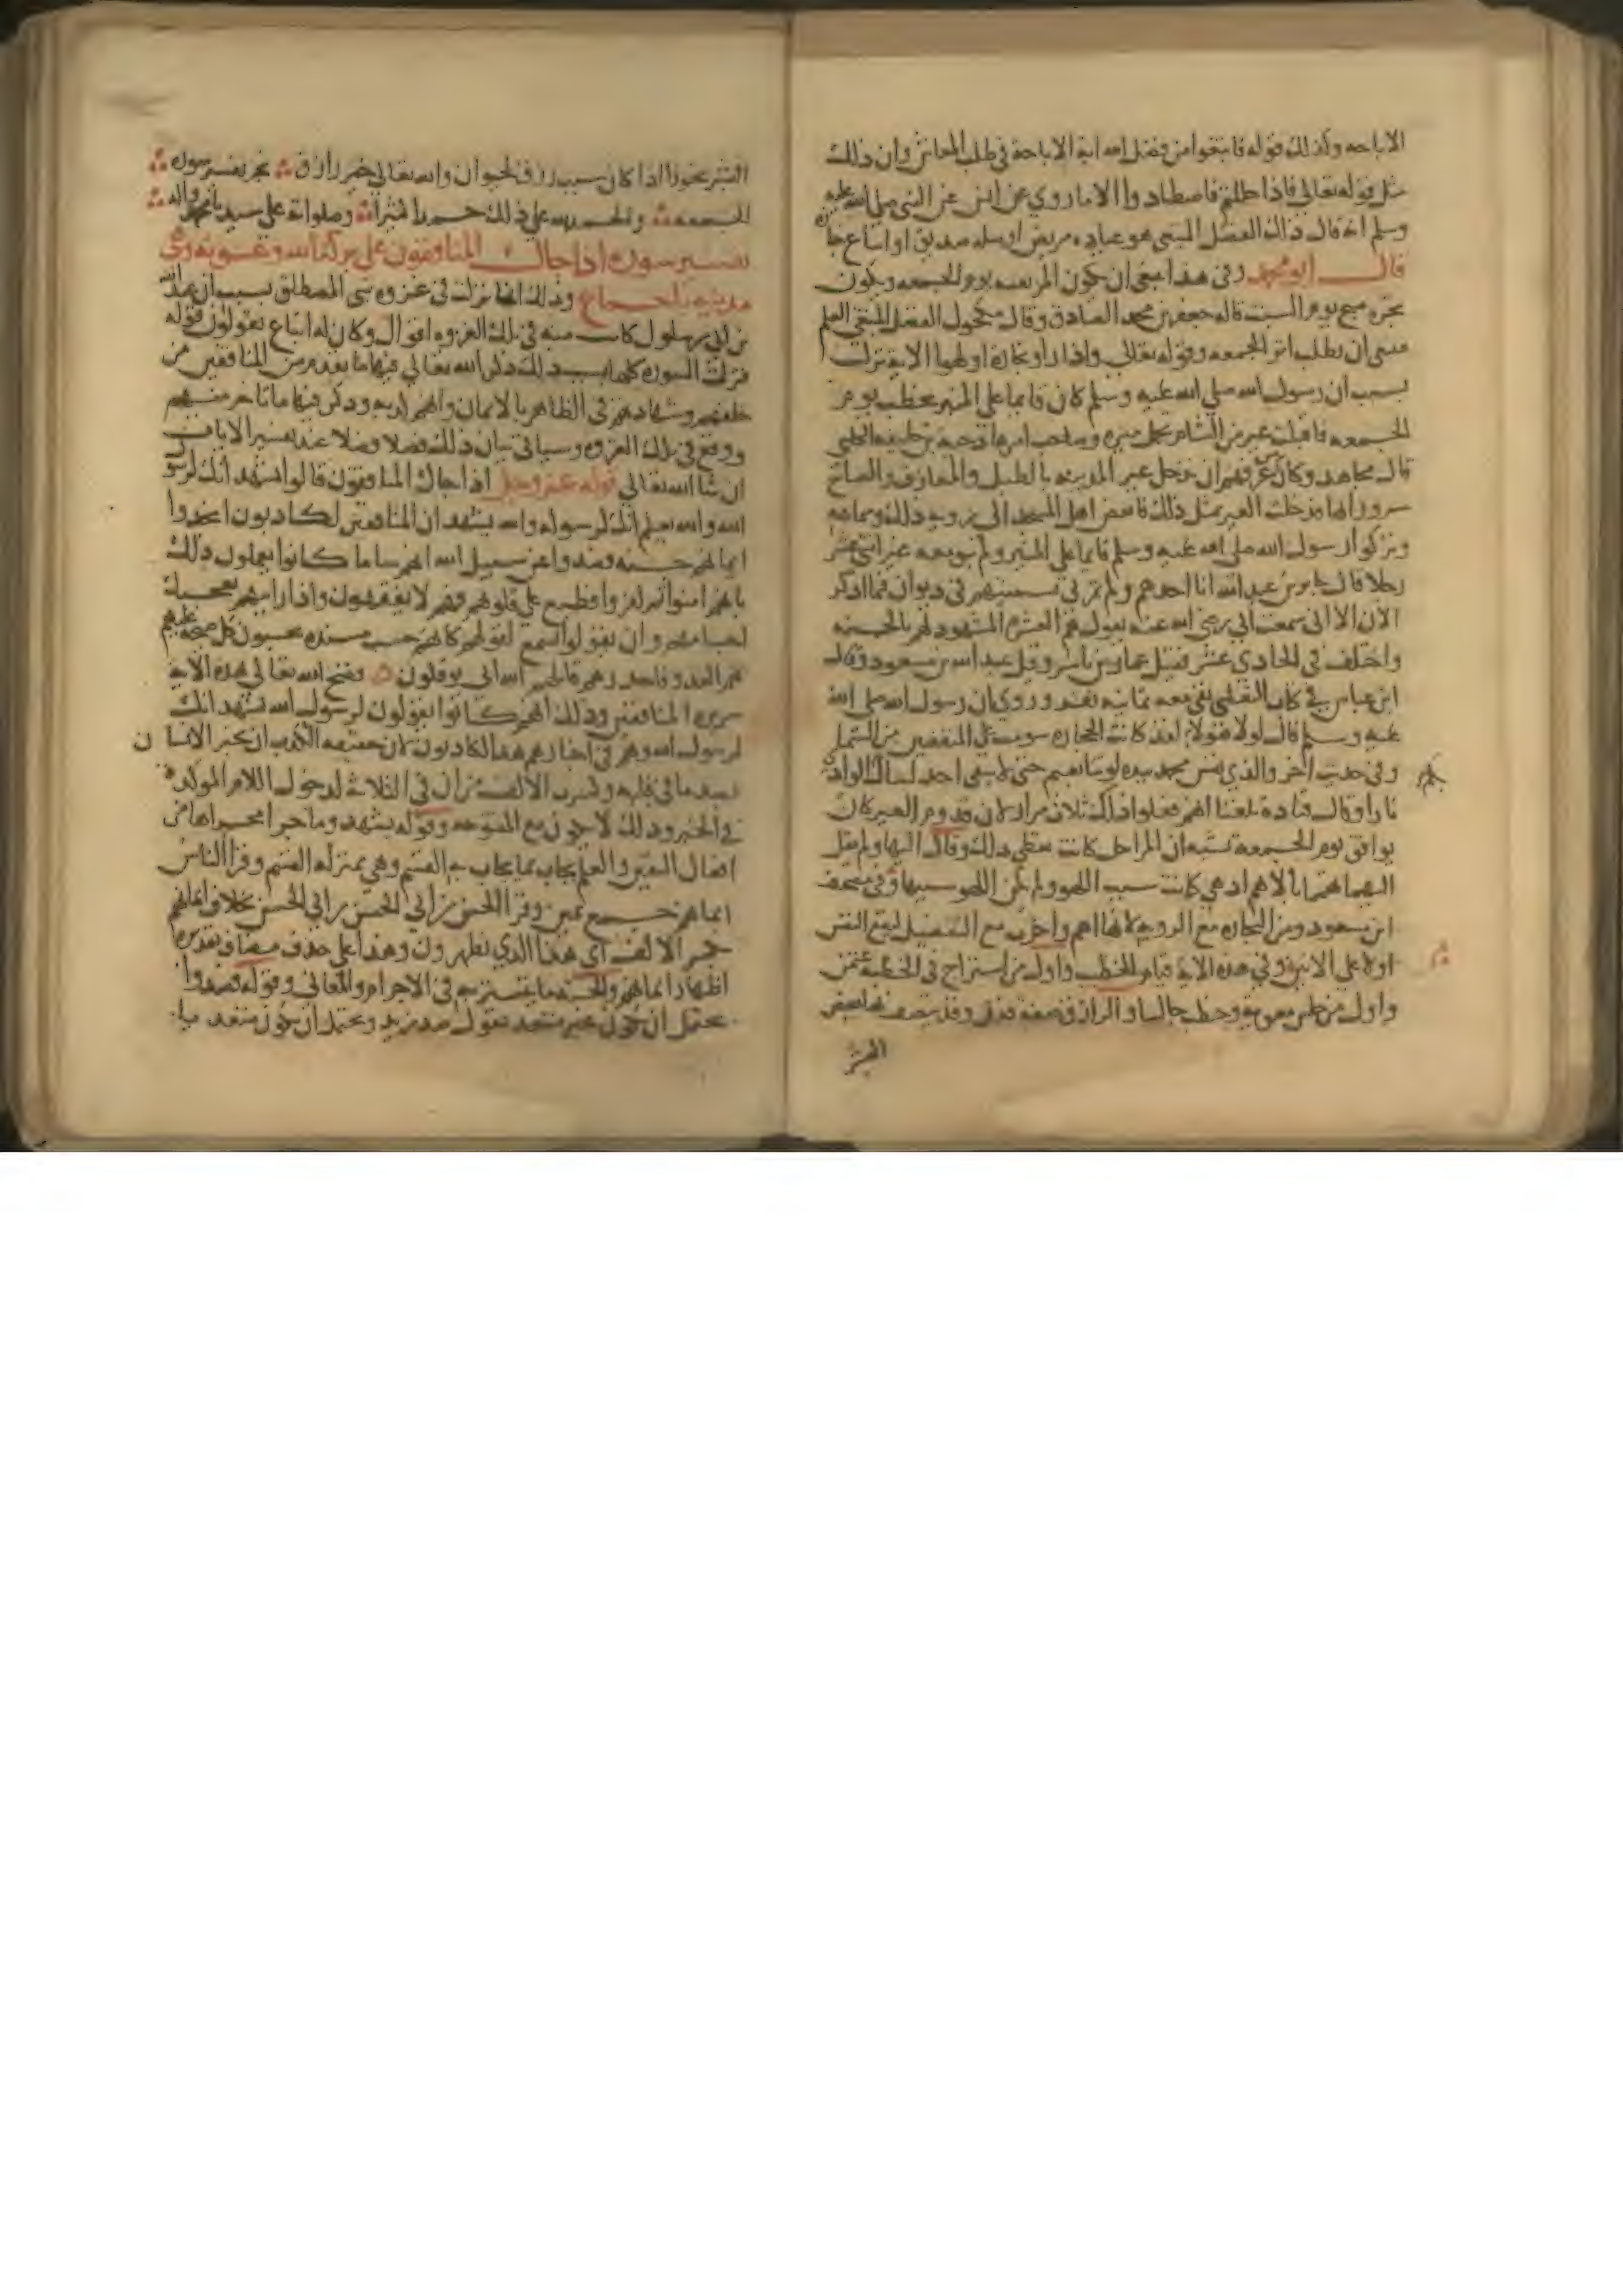 الاباحه وكذلك قوله فابتغوا من فضل الله انه الاباحة في طلب المعاش وان ذلك
مثل قوله تعالى فاذا حللتم فاصطادوا الا ما روي عن انس عن النبي صلى الله عليه
وسلم انه قال ذلك الفضل المبتغى هو عيادة مريض او صلة صديق او اتباع جنازة
قال ابو محمد وفي هذا ينبغي ان يكون المرء بقية يوم الجمعه ويكون
نحوه صبح يوم السبت قاله جعفر بن محمد الصادق وقال مكحول الفضل المبتغى العلم
فينبغي ان يطلب اثر الجمعه وقوله تعالى واذا راوا تجارة او لهوا الايه نزلت
بسبب ان رسول الله صلى الله عليه وسلم كان قايما على المنبر يخطب يوم
الجمعه فاقبلت عير من الشام تحمل ميره وصاحب امرها دحيه بن خليفه الكلبي
قال مجاهد وكان من عرفهم ان تدخل عير المدينه بالطبل والمعازف والصياح
سرورا بها فدخلت العير بمثل ذلك فانفض اهل المسجد الى رويه ذلك وسماعه
وتركوا رسول الله صلى الله عليه وسلم قايما على المنبر ولم يبق معه غير اثني عشر
رجلا قال جابر بن عبد الله انا احدهم ولم تمر بي تسميتهم في ديوان فيما اذكر
الان الا اني سمعت ابي رضي الله عنه يقول هم العشره المشهود لهم بالجنه
واختلف في الحادي عشر فقيل عمار بن ياسر وقيل عبد الله بن مسعود وقال
ابن عباس في كتاب الثعلبي بقي معه ثمانيه نفر وروي ان رسول الله صلى الله
عليه وسلم قال لولا هولاء لقد كانت الحجاره سومت على المنفضين من السما
وفي حديث اخر والذي نفس محمد بيده لو تتابعتم حتى لا يبقى احد لسال الوادي بكم
نارا وقال قتادة بلغنا انهم فعلوا ذلك ثلاث مرار لان قدوم العير كان
يوافق يوم الجمعه وقال اليها ولم يقل
اليهما اهتماما بالاهم اذ هي كانت سبب اللهو ولم يكن اللهو سببها وفي مصحف
ابن مسعود ومن التجاره مع اللهو لانها اهم واخرت مع التفضيل لتقع النفس
اولا على الابين وفي هذه الاية قيام الخطيب واول من استراح في الخطبة عثمن
واول من جلس معويه وخطب جالسا والرازق صفه فعل وقد يتصف بها بعض
البشر
البشر تجوزا اذا كان سبب رزق الحيوان والله تعالى خير الرازقين نجز تفسير سورة
الجمعه والحمد لله على ذلك حمدا كثيرا وصلواته على سيدنا محمد واله
تفسير سورة اذا جاك المنافقون على بركة الله وعونه وهي
مدنيه باجماع وذلك انها نزلت في غزوه بني المصطلق بسبب ان عبد الله
بن ابي بن سلول كانت منه في تلك الغزوه اقوال وكان له اتباع يقولون قوله
فنزلت السوره كلها بسبب ذلك ذكر الله تعالى فيها ما تقدم من المنافقين من
حلفهم وشهادتهم في الظاهر بالايمان وانهم كذبه وذكر فيها ما تاخر منهم
ووقع في تلك الغزوه وسياتي بيان ذلك فصلا فصلا عند تفسير الايات
ان شا الله تعالى قوله عز وجل اذا جاك المنافقون قالوا نشهد انك لرسول
الله والله يعلم انك لرسوله والله يشهد ان المنافقين لكاذبون اتخذوا
ايمانهم جنه فصدوا عن سبيل الله انهم سا ما كانوا يعملون ذلك
بانهم امنوا ثم كفروا فطبع على قلوبهم فهم لا يفقهون واذا رايتهم تعجبك
اجسامهم وان يقولوا تسمع لقولهم كانهم خشب مسنده يحسبون كل صيحة عليهم
هم العدو فاحذرهم قاتلهم الله انى يوفكون فضح الله تعالى بهذه الاية
سريره المنافقين وذلك انهم كانوا يقولون لرسول الله نشهد انك
لرسول الله وهم في اخبارهم هذا كاذبون لان حقيقه الكذب ان يخبر الانسان
بضد ما في قلبه وكسرت الالف من ان في الثلاثة لدخول اللام الموكده
في الخبر وذلك لا يكون مع المفتوحه وقوله نشهد وما جرا مجراها من
افعال اليقين والعلم يجاب بما يجاب به القسم وهي بمنزله القسم وقرا الناس
ايمانهم جمع يمين وقرا الحسن بن ابي الحسن بخلاف ايمانهم
بكسر الالف اي هذا الذي تظهرون وهذا على حذف مضاف تقديره
اظهار ايمانهم والجنه ما يستتر به في الاجرام والمعاني وقوله فصدوا
يحتمل ان يكون غير متعد تقول صد زيد ويحتمل ان يكون متعديا